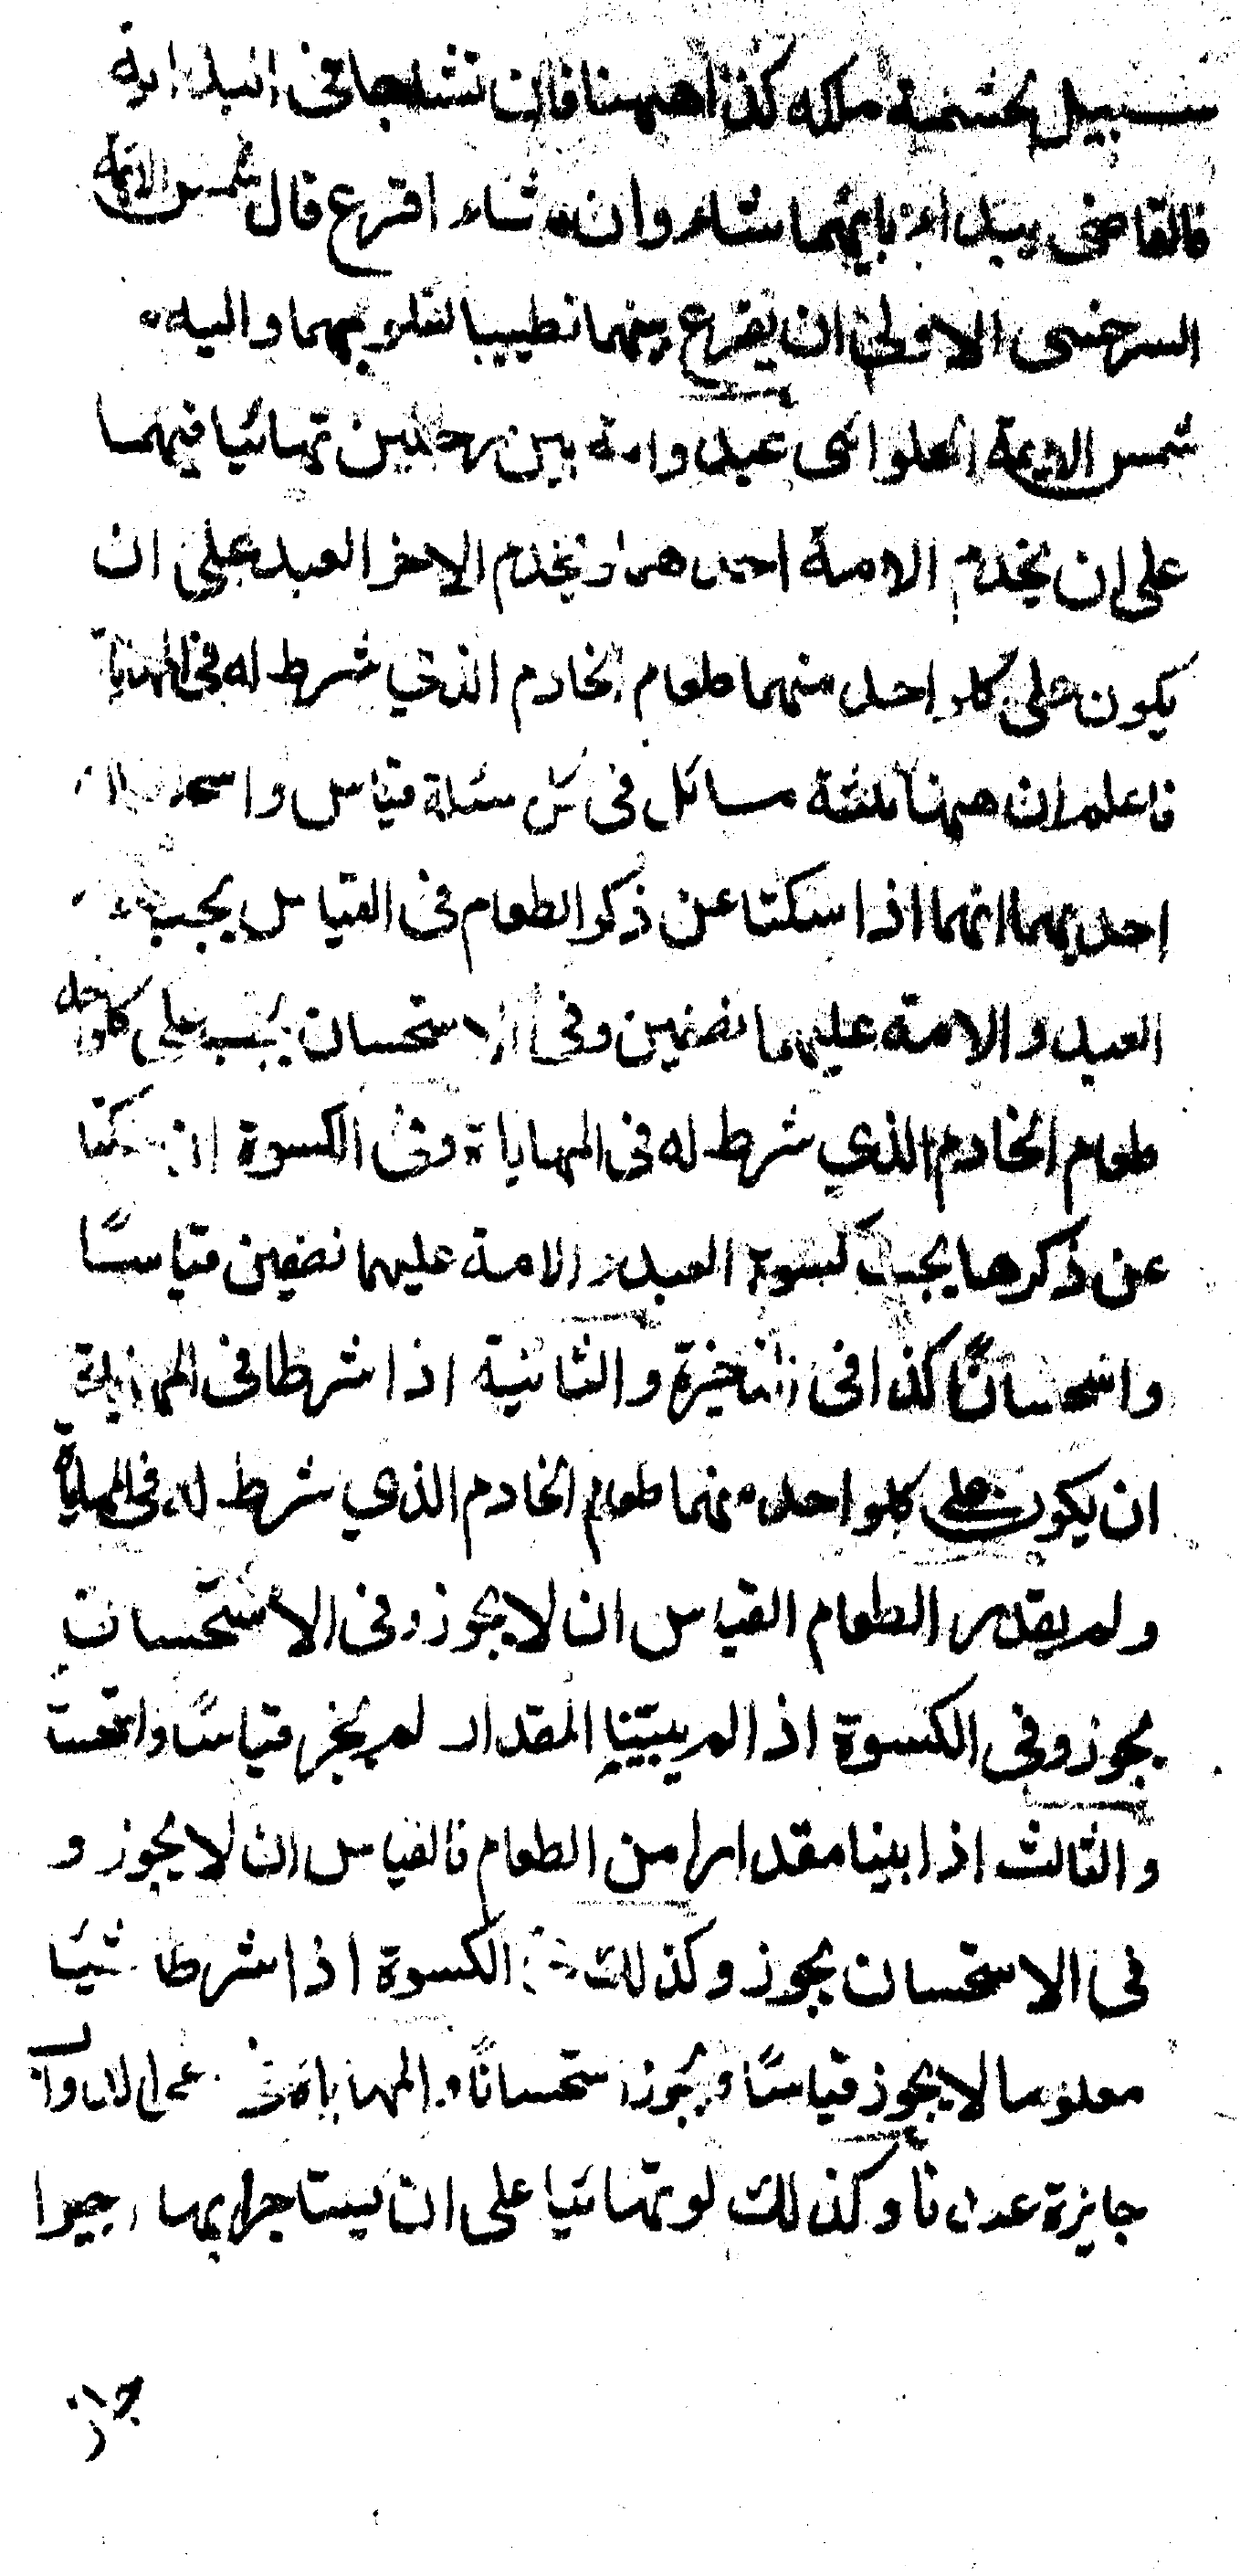 سبيل بخشمة ملكه كذا ههنا فان تشاحا فى البداية
فالقاضى يبداء بايهما شاء وان شاء اقرع قال شمس الائمة
السرخسى الاولى ان يقرع بينهما تطييبا لقلوبهما واليه
شمس الائمة الحلوائى عبد وامة بين رجلين تهائيا فيهما
على ان يخدم الامة احدهما ويخدم الاخر العبد على ان
يكون على كلواحد منهما طعام الخادم الذي شرط له فى المهاياة
فاعلم ان ههنا ثلثة مسائل فى كل مسئلة قياس و
احديهما انهما اذا سكتا عن ذكر الطعام فى القياس يجب
العبد والامة عليهما نصفين وفى الاستحسان يجب على كلواحد
طعام الخادم الذي شرط له فى المهاياة وفى الكسوة ان سكتا
عن ذكرها يجب كسوة العبد والامة عليهما نصفين قياسًا
واستحسانًا كذا فى الذخيرة والثانية اذا شرطا فى المهاياة
ان يكون على كلواحد منهما طعام الخادم الذي شرط له فى المهاياة
ولم يقدر الطعام القياس ان لا يجوز وفى الاستحسان
يجوز وفى الكسوة اذا لم يبينا المقدار لم يجز قياسًا واستحسانا
والثالث اذا بينا مقدارا من الطعام فالقياس ان لا يجوز و
فى الاستحسان يجوز وكذلك فى الكسوة اذا شرطا شيئا
معلوما لا يجوز قياسًا ويجوز استحسانًا والمهاياة فى
جايزة عندنا وكذلك لو تهائيا على ان يستاجرا بهما اجيرا